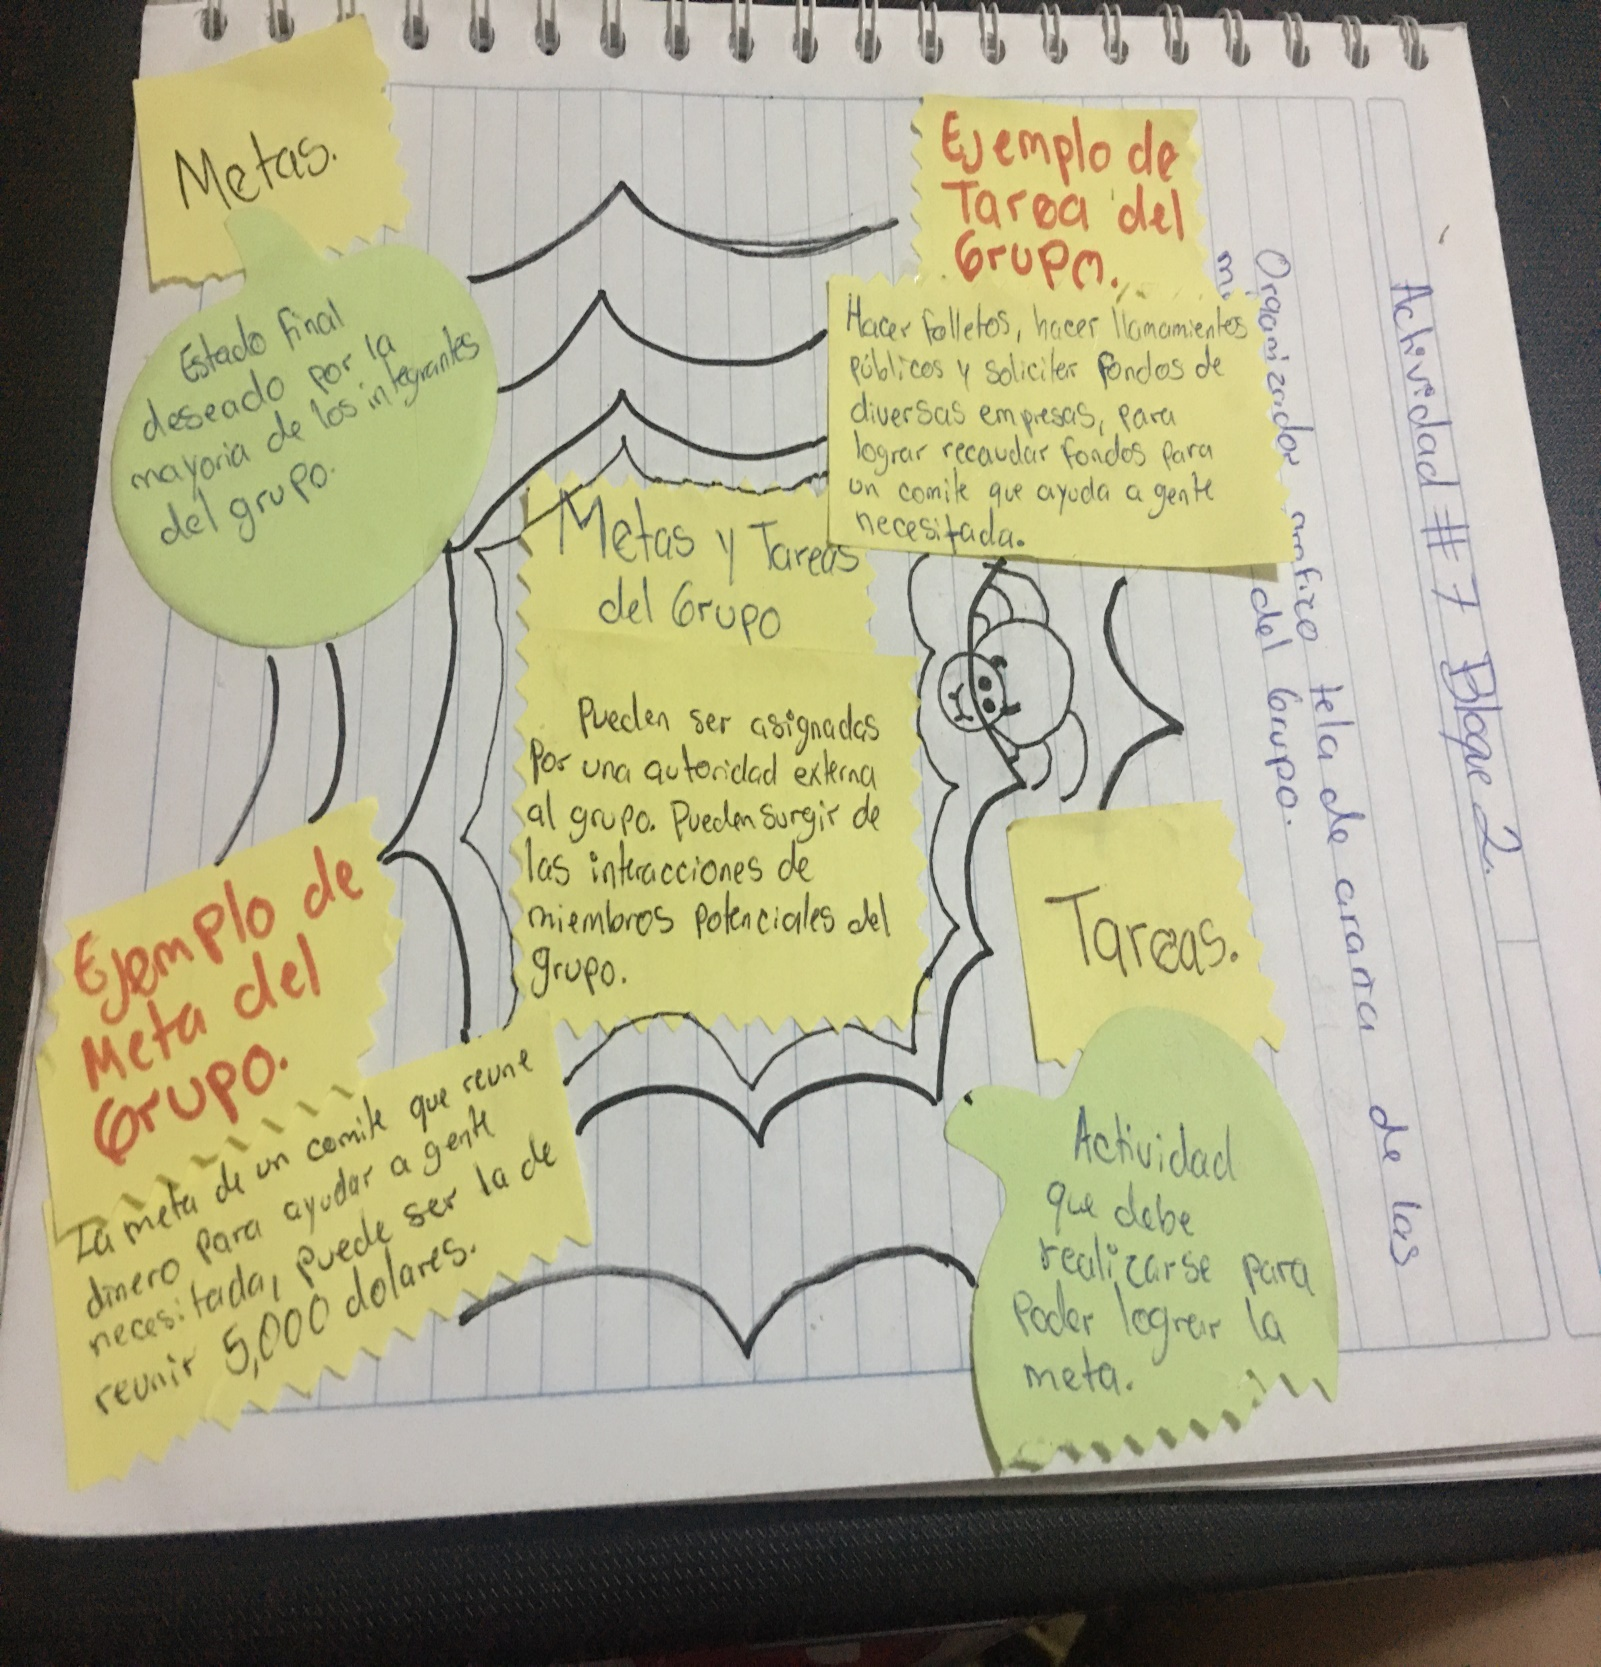 Actividad # 7 Bloque 2.
Organizador tela de araña de las
del Grupo.
Metas.
Estado final
deseado por la
mayoria de los integrantes
del grupo.
Ejemplo de
Tarea del
Grupo.
Hacer folletos, hacer llamamientos
públicos y soliciter fondos de
diversas empresas, para
lograr recaudar fondos para
un comite que ayuda a gente
necesitada.
Metas y Tareas
del Grupo
Pueden ser asignadas
por una autoridad externa
al grupo. Pueden surgir de
las interacciones de
miembros potenciales del
grupo.
Ejemplo de
Meta del
Grupo.
La meta de un comite que reune
dinero para ayudar a gente
necesitada, puede ser la de
reunir 5,000 dolares.
Tareas.
Actividad
que debe
realizarse para
Poder lograr la
meta.